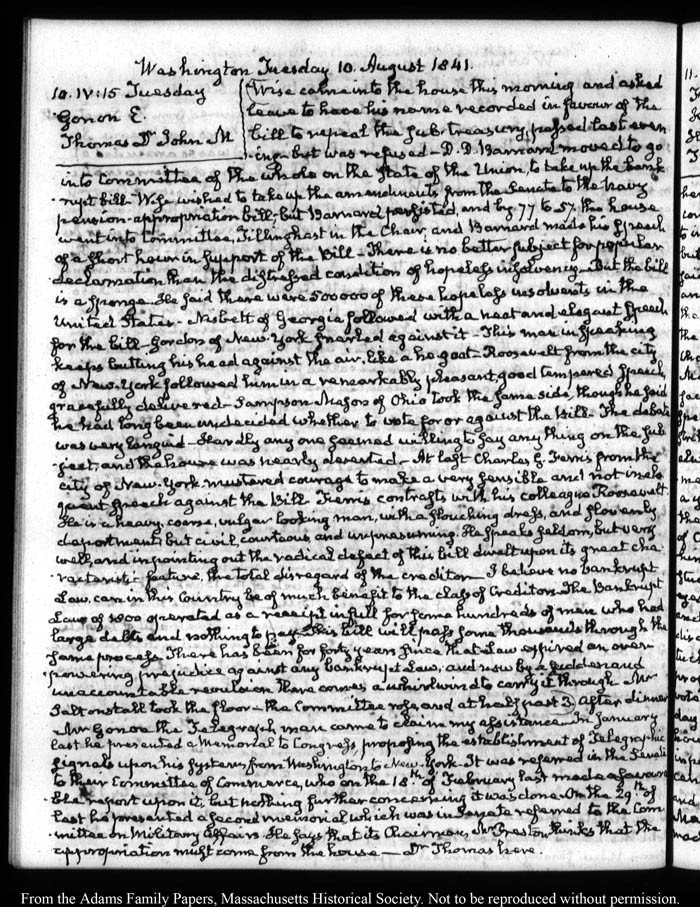 Washington Tuesday 10. August 1841.
10. IV:15 Tuesday
Gonon E.
Thomas Dr John M
Wise came into the house this morning and asked
leave to have his name recorded in favour of the
bill to repeal the sub-treasury, passed last even
-ing but was refused—D. D. Barnard moved to go
into committee of the whole on the State of the Union, to take up the bank
-rupt bill—Wise wished to take up the amendments from the Senate to the navy
pension-appropriation bill, but Barnard persisted, and by 77 to 57 the house
went into Committee, Tillinghast in the Chair, and Barnard made his speech
of a short hour in support of the Bill—There is no better subject for popular
declamation than the distressed condition of hopeless insolvency—But the bill
is a sponge. He said there were 500000 of these hopeless insolvents in the
United States—Nisbett of Georgia followed with a neat and elegant speech
for the bill—Gordon of New-York snarled against it—This man in speaking
keeps butting his head against the air, like a he goat—Roosevelt from the city
of New-York followed him in a remarkably pleasant, good tempered speech,
gracefully delivered—Sampson Mason of Ohio took the same side, though he said
he had long been undecided whether to vote for or against the Bill—The debate
was very languid—Hardly any one seemed willing to say any thing on the sub
-ject, and the house was nearly deserted—At last Charles G. Ferris from the
city of New-York mustered courage to make a very sensible and not inelo
quent speech against the Bill. Ferris contrasts with his colleague Roosevelt.
He is a heavy, coarse, vulgar looking man, with a slouching dress, and slovenly
deportment; but civil, courteous, and unpresuming. He speaks seldom, but very
well, and in pointing out the radical defect of this bill dwelt upon its great cha
-racteristic feature, the total disregard of the creditor—I believe no bankrupt
Law, can in this Country be of much benefit to the class of Creditors. The Bankrupt
Law of 1800 operated as a receipt in full for some hundreds of men who had
large debts and nothing to pay—This bill will pass some thousands through the
same process. There has been for forty years since that Law expired an over
-powering prejudice against any bankrupt Law, and now by a sudden and
unaccountable revulsion there comes a whirlwind to carry it through. Mr
Saltonstall took the floor—the Committee rose, and at half past 3. After dinner
Mr Gonon the Telegraph man came to claim my assistance—In January
last he presented a Memorial to Congress, proposing the establishment of Telegraphic
signals upon his system from Washington to New-York. It was referred in the Senate
to their Committee of Commerce, who on the 18th of February last made a favoura
-ble report upon it, but nothing further concerning it was done. On the 29th of
last he presented a second memorial which was in Senate referred to the Com
-mittee on Military Affairs. He says that its Chairman, Mr Preston thinks that the
appropriation must come from the house—Dr Thomas here.
From the Adams Family Papers, Massachusetts Historical Society. Not to be reproduced without permission.